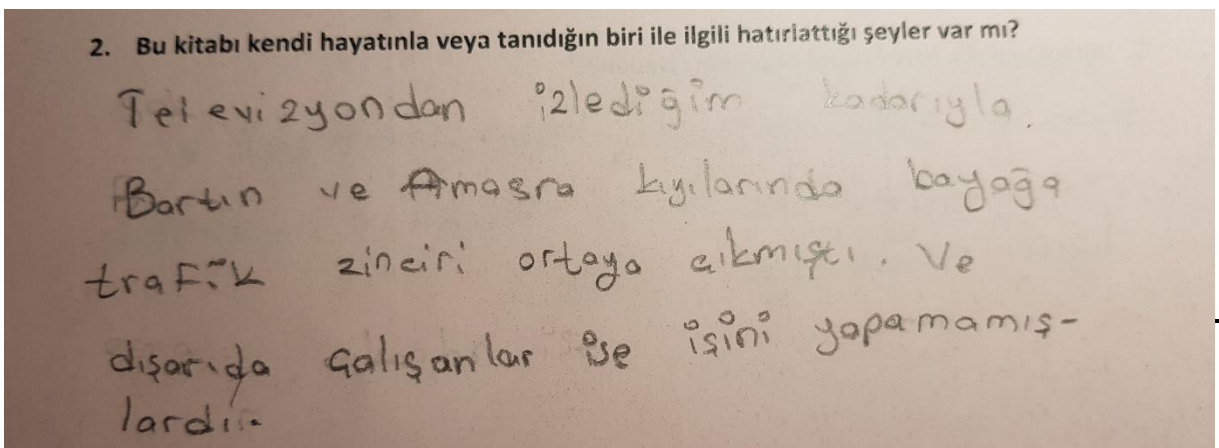 2. Bu kitabı kendi hayatınla veya tanıdığın biri ile ilgili hatırlattığı şeyler var mı?
Televizyondan izlediğim kadarıyla
Bartın ve Amasra kıyılarında bayağa
trafik zinciri ortaya çıkmıştı. Ve
dışarıda çalışanlar ise işini yapamamış-
lardı.